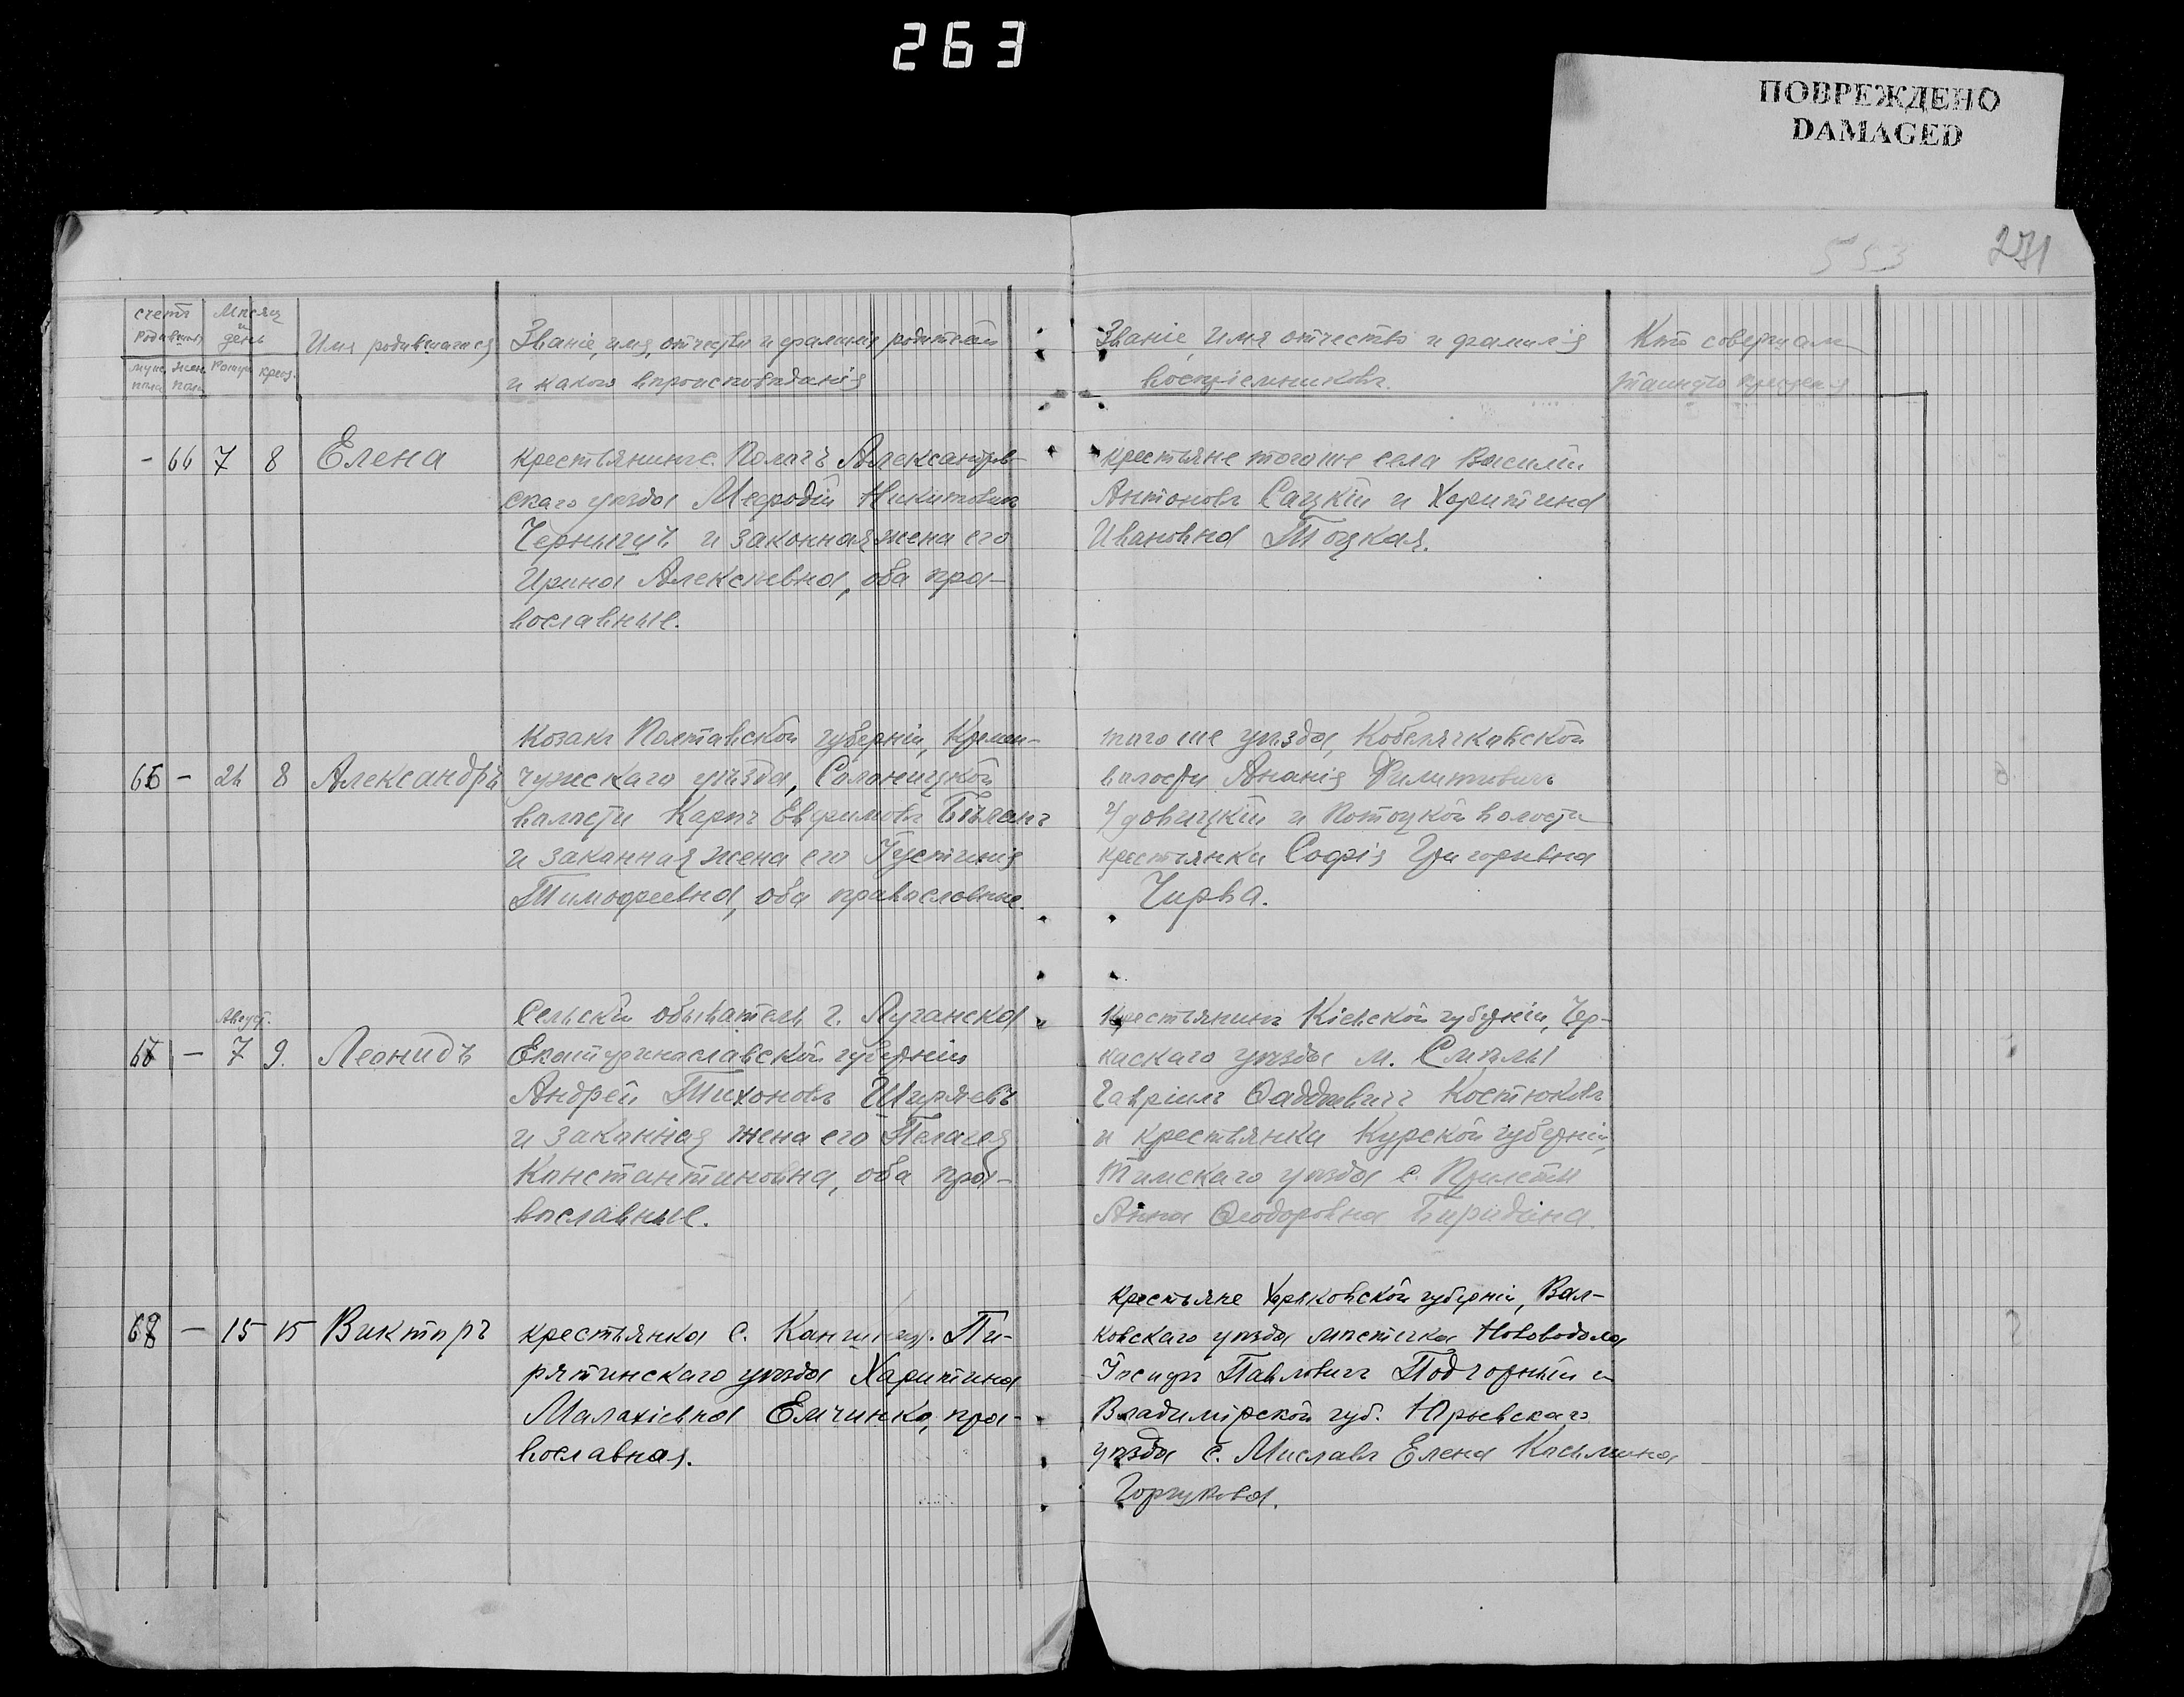 263
ПОВРЕЖДЕНО
DAMAGED
553
271
счетъ
Мѣсяц
и
день
Имя родившагося
Званіе, имя, отчество и фамилія родителей
и какого вѣроисповѣданія
Званіе, имя отчество и фамилія
воспріемниковъ.
Кто совершалъ
таинство крещенія
- 66 7 8 Елена
крестьянинъ с. Пологъ Александров-
скаго уѣзда Мефодій Никитовичъ
и законная жена его
Ирина Алексѣевна, оба пра-
вославные.
крестьяне того же села Василій
Антоновъ Сацкій и Харитина
Ивановна Тоцкая.
66 - 8 Александръ
козакъ Полтавской губерніи, Кремен-
чужскаго уѣзда, Солоницкой
волости Карпъ Евфимовъ
и законная жена его Іустинія
Тимофеевна, оба православные.
того же уѣзда, Кобелячковской
волости Ананія Филиповичъ
Удовицкій и Потоцкой волости
крестьянка Софія Григорьевна
Чирва.
Август.
67 - 7 9. Леонидъ
Сельскій обыватель г. Луганска
Екатеринославской губерніи
Андрей Тихоновъ Ширяевъ
и законная жена его Пелагея
Константиновна, оба пра-
вославные.
Крестьянинъ Кіевской губерніи, Чер-
каскаго уѣзда м. Смѣлы
Гавріилъ Костюковъ
и крестьянка Курской губерніи,
Тимскаго уѣзда с.
Анна Ѳеодоровна
68 - 15 15 Викторъ
крестьянка с. Пи-
рятинскаго уѣзда Харитина
Малахіевна Емчинко, пра-
вославная.
крестьяне Харьковской губерніи, Вал-
ковскаго уѣзда мѣстечка Нововодолаг
Іосифъ Павловичъ Подгорный и
Владимірской губ. Юрьевскаго
уѣзда с. Елена Косьмина
Горчукова.